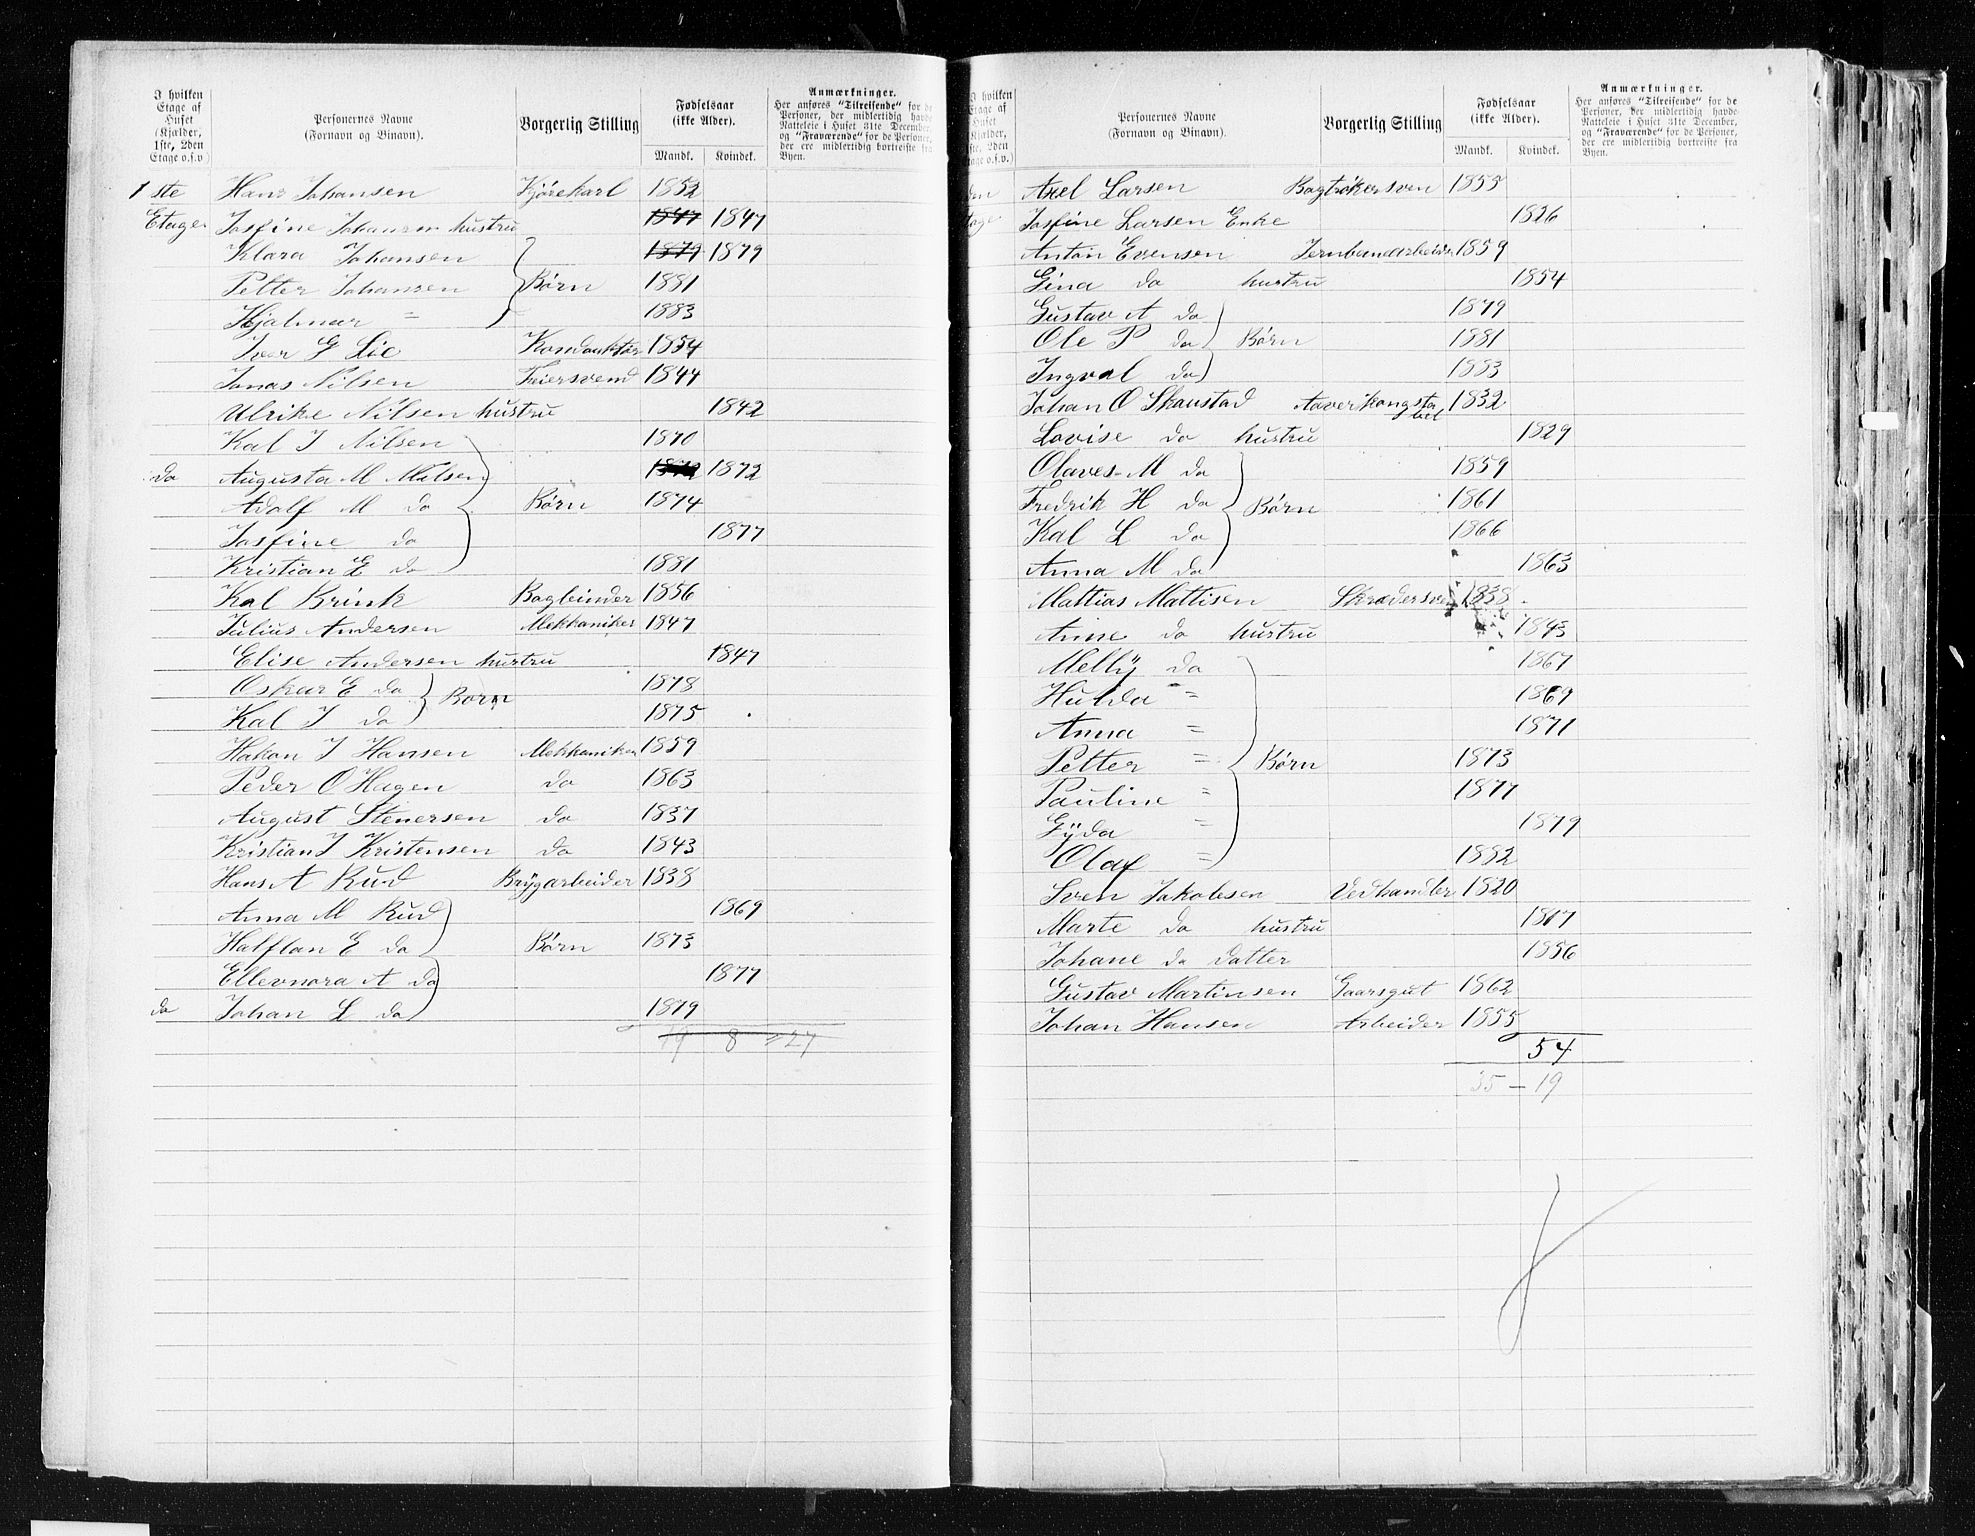 I hvilken
Etage af
Huset
(Kjælder,
1ste, 2den
Etage o.s.v)
Personernes Navne
(Fornavn og Binavn).
Borgerlig Stilling
Fødselsaar
(ikke Alder).
Mandk. Kvindek.
Anmærkninger.
Her anføres "Tilreisende" for de
Personer, der midlertidig havde
Natteleie i Huset 31te December,
og "Fraværende" for de Personer,
der ere midlertidig bortreiste fra
Byen.
1 ste Hans Johansen Kjørekarl 1852
Etage Josfine Johansen hustru 1847 1847
Klara Johansen 1879 1879
Petter Johansen Børn 1881
Hjalmar = 1883
Iver G Lie Konduktør 1854
Jonas Nilsen Feiersvend 1844
Ulrike Nilsen hustru 1842
Kal J Nilsen 1870
do Augusta M Nilsen 1872 1872
Adolf M do Børn 1874
Josfine do 1877
Kristian E do 1881
Kal Brink Bogbinder 1856
Julius Andersen Mekkaniker 1847
Elise Andersen hustru 1847
Oskar E do Børn 1878
Kal J do 1875
Hakon J Hansen Mekkaniker 1859
Peder O Hagen do 1863
August Stenersen do 1837
Kristian J Kristensen do 1843
Hans A Rud Brygarbeider 1838
Anna M Rud 1869
Halfdan E do Børn 1873
Ellevnora A do 1877
do Johan L do 1879
19 8 = 27
I hvilken
Etage af
Huset
(Kjælder,
1ste, 2den
Etage o.s.v.)
Personernes Navne
(Fornavn og Binavn).
Borgerlig Stilling
Fødselsaar
(ikke Alder).
Mandk. Kvindek.
Anmærkninger.
Her anføres "Tilreisende" for de
Personer, der midlertidig havde
Natteleie i Huset 31te December,
og "Fraværende" for de Personer,
der ere midlertidig bortreiste fra
Byen.
den Axel Larsen Bogtrøkersven 1855
tage Josfine Larsen Enke 1826
Anton Evensen Jernbanearbeider 1859
Gina do hustru 1854
Gustav A do 1879
Ole P do Børn 1881
Ingval do 1883
Johan O Skaustad 1832
Lovise do hustru 1829
Olaves M do 1859
Fredrik H do Børn 1861
Kal L do 1866
Anna M do 1863
Mattias Mattisen Skrædersven 1838
Anne do hustru 1843
Melly do 1867
Hulda = 1869
Anna = 1871
Petter = Børn 1873
Pauline = 1877
Gyda = 1879
Olaf = 1882
Sven Jakobsen Vedhandler 1820
Marte do hustru 1817
Johane do Datter 1856
Gustav Martinsen Gaarsgut 1862
Johan Hansen Arbeider 1855
54
35 – 19